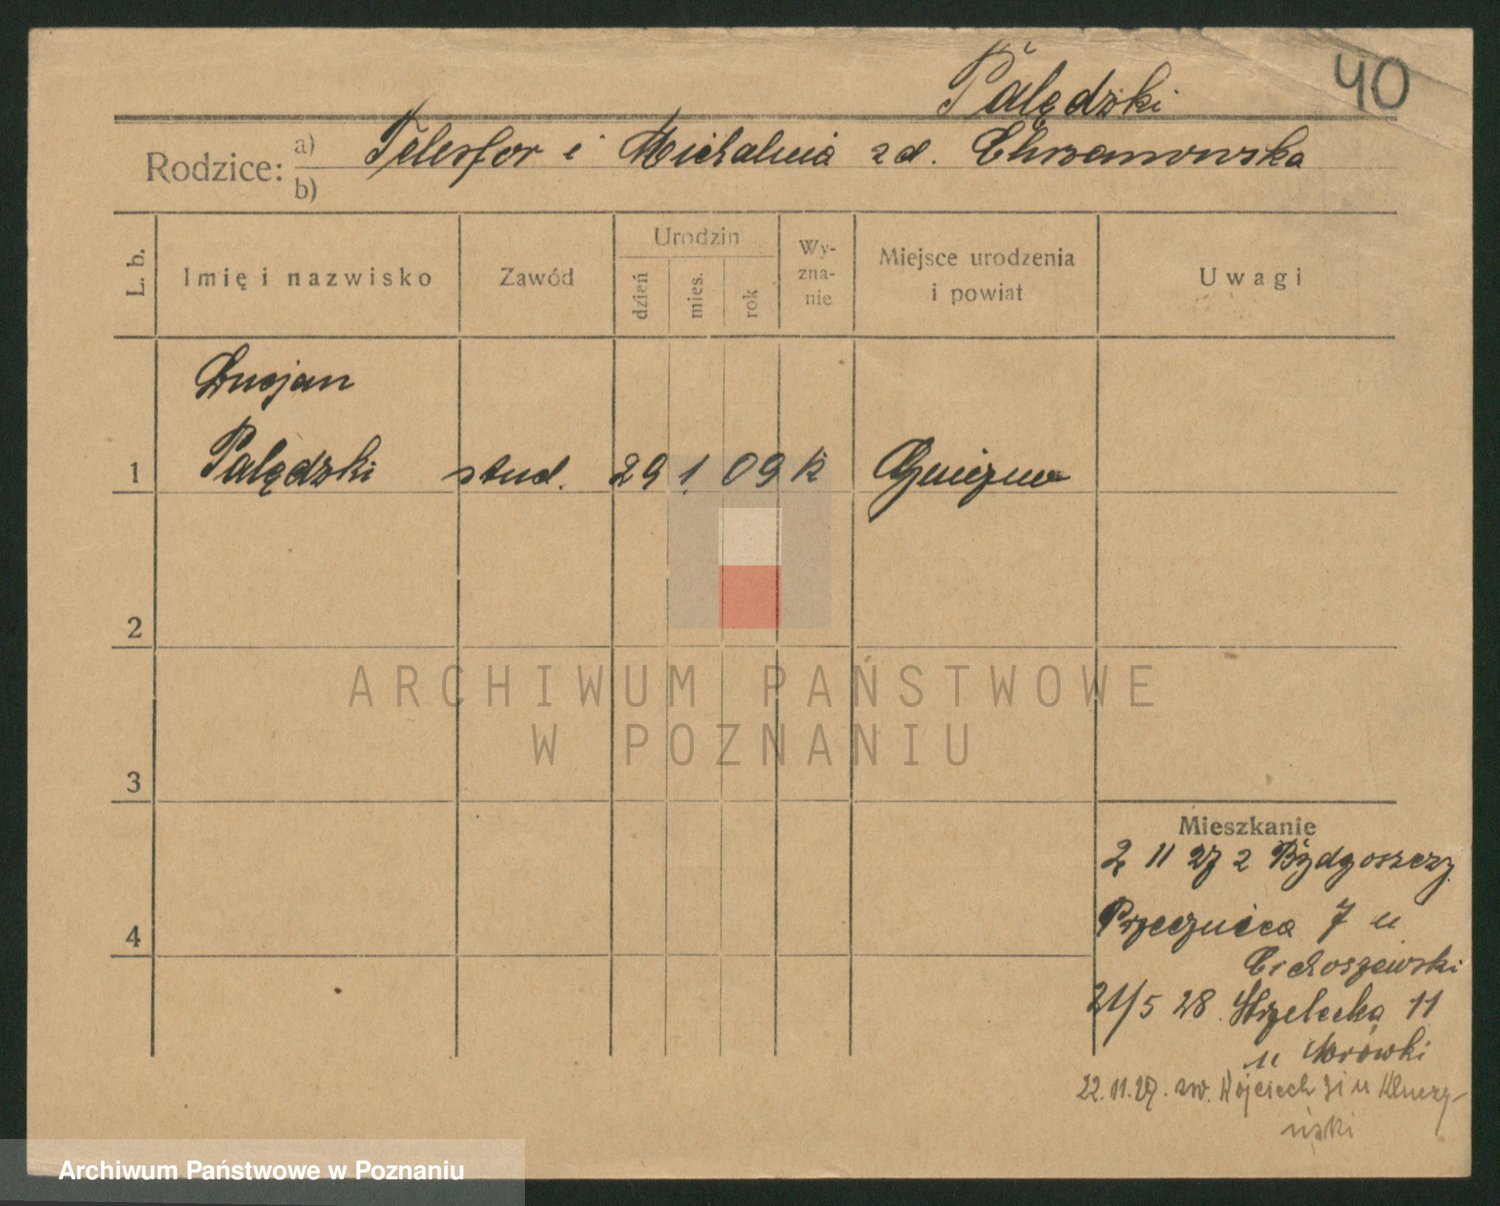 40
Palędzki
Rodzice: a) Telesfor i Michalina zd. Chrzanowska
b)
L. b. Imię i nazwisko Zawód Urodzin dzień mies. rok Wy-zna-nie Miejsce urodzenia i powiat Uwagi
Lucjan
1 Palędzki stud. 29 1. 09 k Gniezno
2
3
4
ARCHIWUM PAŃSTWOWE
W POZNANIU
Mieszkanie
2 11 27 z Bydgoszczy
Przecznica 7 u
Cichoszewski
21/5 28. Strzelecka 11
u Mrówki
22.11.29. św. Wojciech 31 u Kluczy-
ński
Archiwum Państwowe w Poznaniu